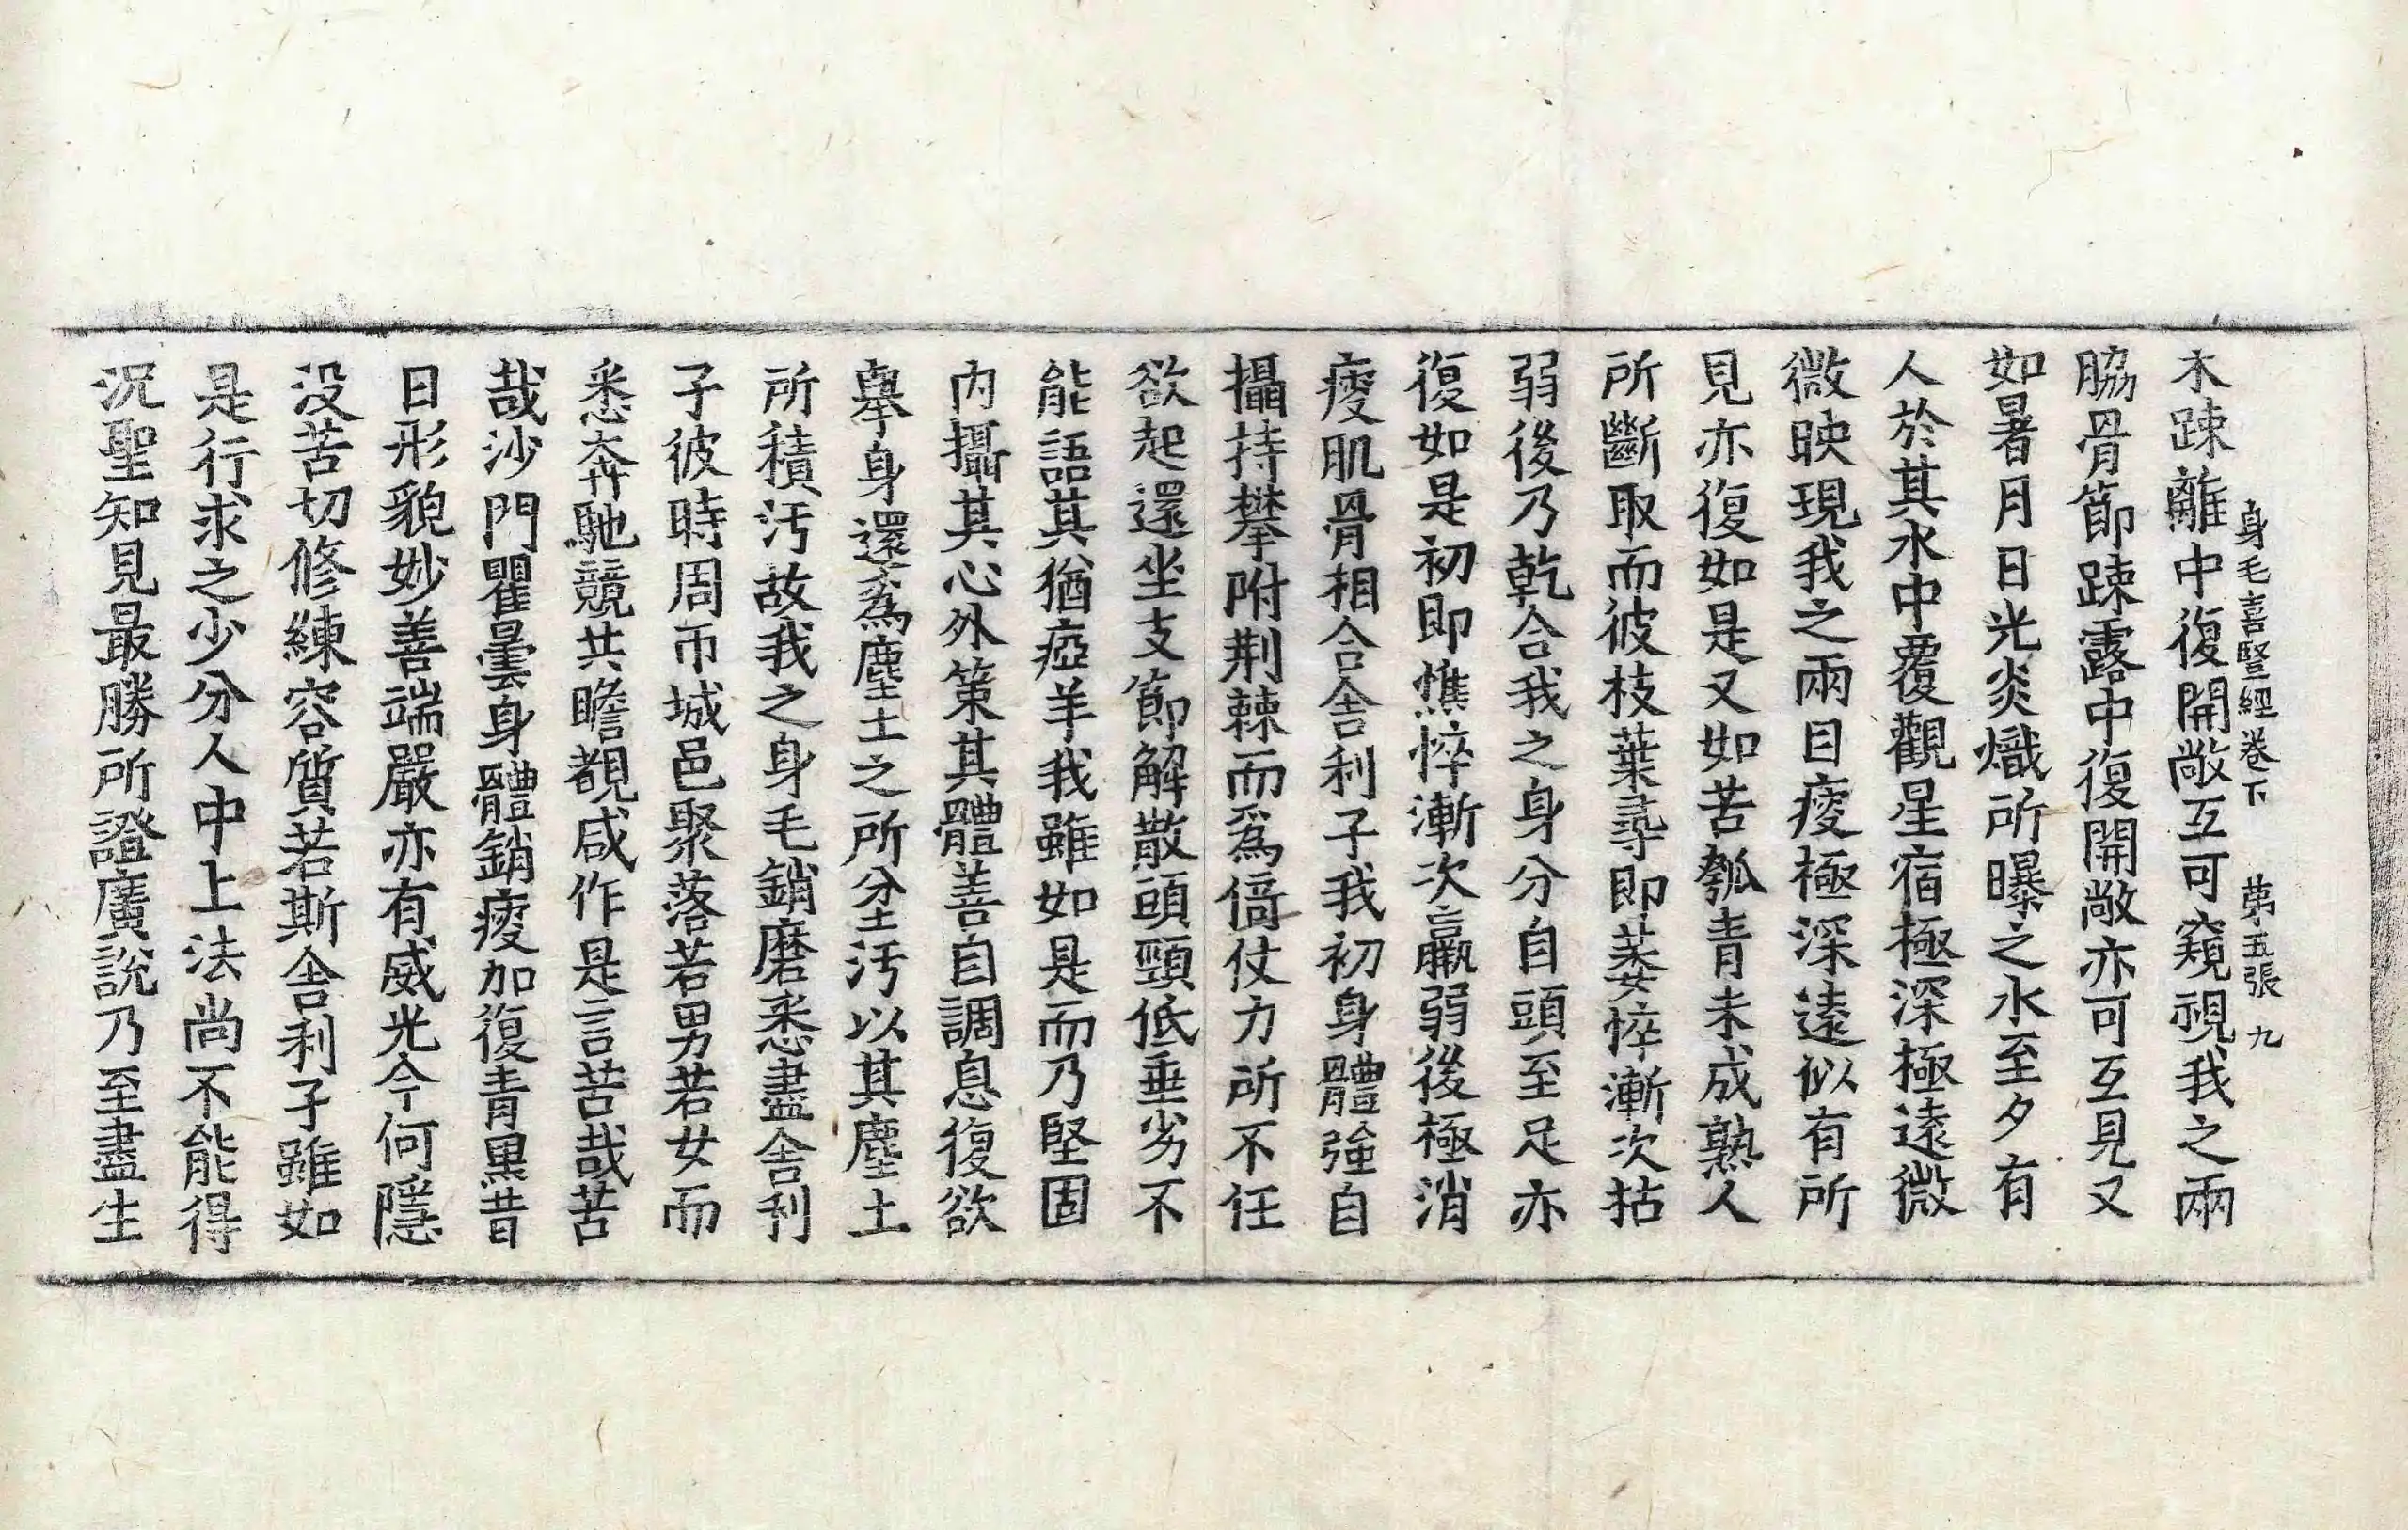 身毛喜豎經卷下 苐五張 九
木踈離中復開敞互可窺視我之兩
脇骨節踈露中復開敞亦可互見又
如暑月日光炎熾所曝之水至夕有
人於其水中覆觀星宿極深極遠微
微映現我之兩目㾪極深遠似有所
見亦復如是又如苦瓠青未成熟人
所斷取而彼枝葉尋即萎悴漸次枯
弱後乃乾合我之身分自頭至足亦
復如是初即憔悴漸次羸弱後極消
㾪肌骨相合舍利子我初身體強自
攝持攀附荆棘而爲倚仗力所不任
欲起還坐支節解散頭頸低垂劣不
能語其猶瘂羊我雖如是而乃堅固
内攝其心外策其體善自調息復欲
舉身還爲塵土之所坌汚以其塵土
所積汚故我之身毛銷磨悉盡舍利
子彼時周帀城邑聚落若男若女而
悉奔馳競共瞻覩咸作是言苦哉苦
哉沙門瞿曇身體銷㾪加復青黑昔
日形貌妙善端嚴亦有威光今何隱
没苦切修練容質若斯舍利子雖如
是行求之少分人中上法尚不能得
況聖知見最勝所證廣說乃至盡生